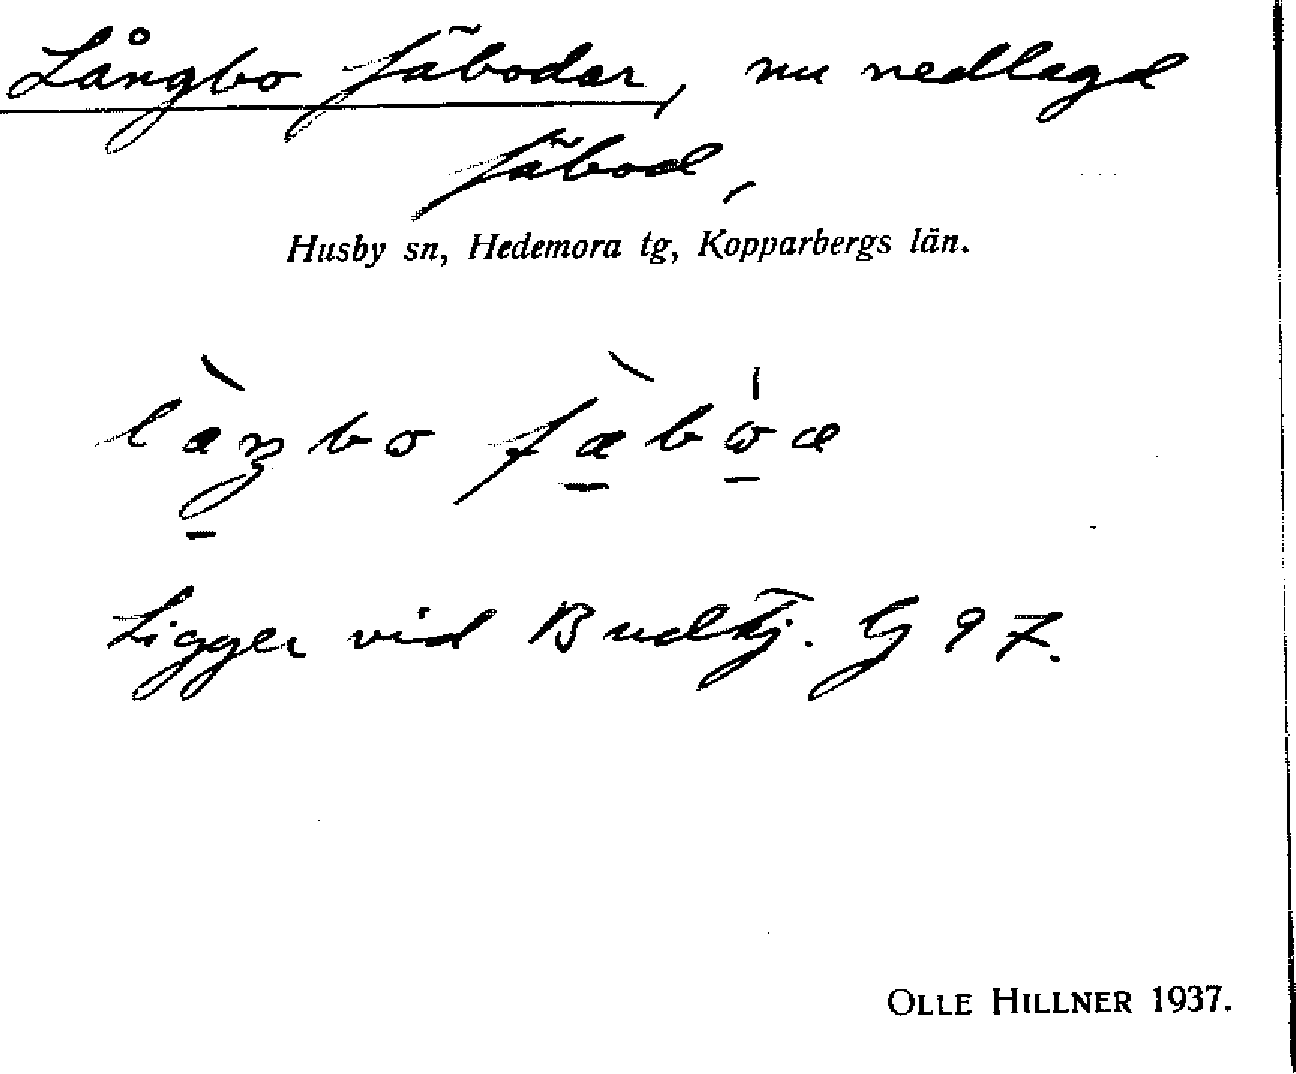 Långbo fäbodar, nu nedlagd
fäbod,
Husby sn, Hedemora tg, Kopparbergs län.
Ligger vid Budtj. G 97.
OLLE HILLNER 1937.